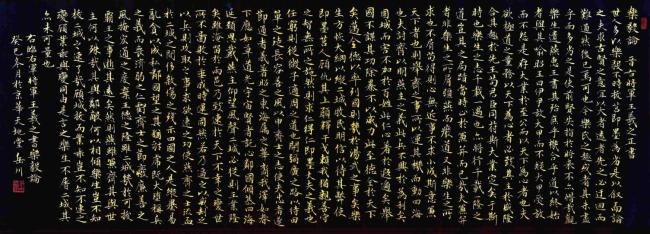 樂毅論 晉右將軍王羲之正書
世人多以樂毅不時拔莒即墨為劣是以叙而論
之夫求古賢之意宜以大者遠者先之必迂迴而
難通然後已焉可也今樂氏之趣或者其未盡
乎而多劣之是使前賢失指於將來不亦惜哉觀
樂生遺燕惠王書其殆庶乎機合乎道以終始
者與其喻昭王曰伊尹放大甲而不疑大甲受放
而不怨是存大業於至公而以天下為心者也夫
欲極道之量務以天下為心者必致其主於盛隆
合其趣於先王苟君臣同符斯大業定矣于斯
時也樂生之志千載一遇也亦將行千載一隆之
道豈其局迹當時止於兼并而已哉夫兼并
者非樂生之所屑彊燕而廢道又非樂生之所
求也不屑苟得則心無近事不求小成斯意兼
天下者也則舉齊之事所以運其機而動四海
也夫討齊以明燕主之義此兵不興於為利矣
圍城而害不加於百姓此仁心著於遐邇矣舉
國不謀其功除暴不以威力此至德令於天下
矣邁全德以率列國則幾於湯武之事矣樂
生方恢大綱以縱二城收民明信以待其弊使
即墨莒人顧仇其上願釋干戈賴我猶親善守
之智無所之施然則求仁得仁即墨大夫之義也
任窮則從微子適周之道也開彌廣之路以待田
單之徒長容善之風以申齊士之志使夫忠者遂
節通者義著昭之東海屬之華裔我澤如春
下應如草道光宇宙賢者託心鄰國傾慕四海
延頸思戴燕主仰望風聲二城必從則王業隆
矣雖淹留於兩邑乃致速於天下不幸之變世
所不圖敗於垂成時運固然若乃逼之以威劫之
以兵則攻取之事求欲速之功使燕齊之士流血
於二城之間侈殺傷之殘示四國之人是縱暴易
亂貪以成私鄰國望之其猶豺虎既大墮稱兵
之義而喪濟弱之仁虧齊士之節廢廉善之
風掩宏通之度棄王德之隆雖二城幾於可拔
霸王之事逝其遠矣然則燕雖兼齊其與世
主何以殊哉其與鄰敵何以相傾樂生豈不知
拔二城之速了哉顧城拔而業乖豈不知不速之
致變顧業乖與變同由是言之樂生不屠二城其
亦未可量也
右臨右軍將軍王羲之書樂毅論
癸巳冬月於京華天地堂 岳川